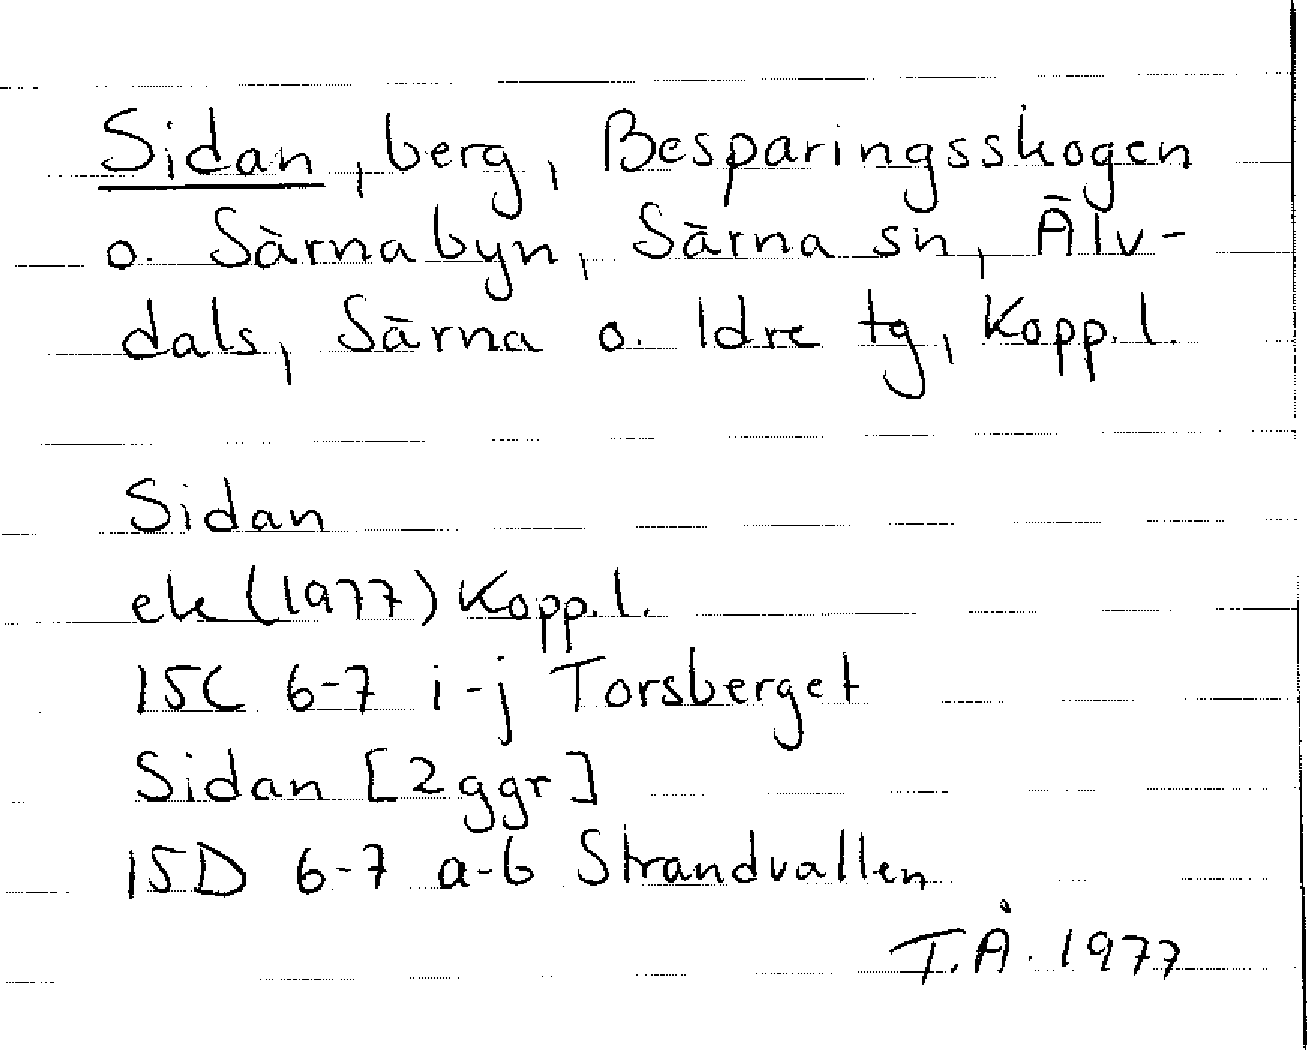 Sidan, berg, Besparingsskogen
o. Särnabyn, Särna sn, Älv-
dals, Särna o. Idre tg, Kopp.l.
Sidan
ek (1977) Kopp.l.
15C 6-7 i-j Torsberget
Sidan [2 ggr]
15D 6-7 a-b Strandvallen
T.Å. 1977